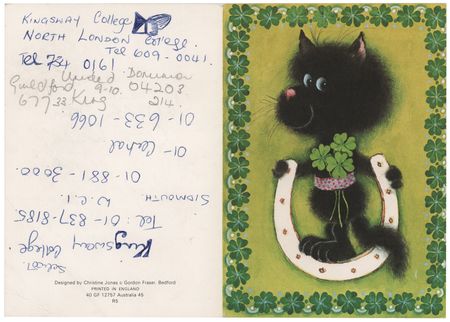 KINGSWAY College
NORTH LONDON College.
Tel 609-0041.
Tel 734 0161
United Dominion
Guildford 9-10. 04203
67733 King 214.
01-633-1066
01- Central
01-881-3000.
SIDMOUTH W.C.1
Tel: 01-837-8185.
Kingsway College
School
Designed by Christine Jones © Gordon Fraser, Bedford
PRINTED IN ENGLAND
40 GF 12757 Australia 45
R5